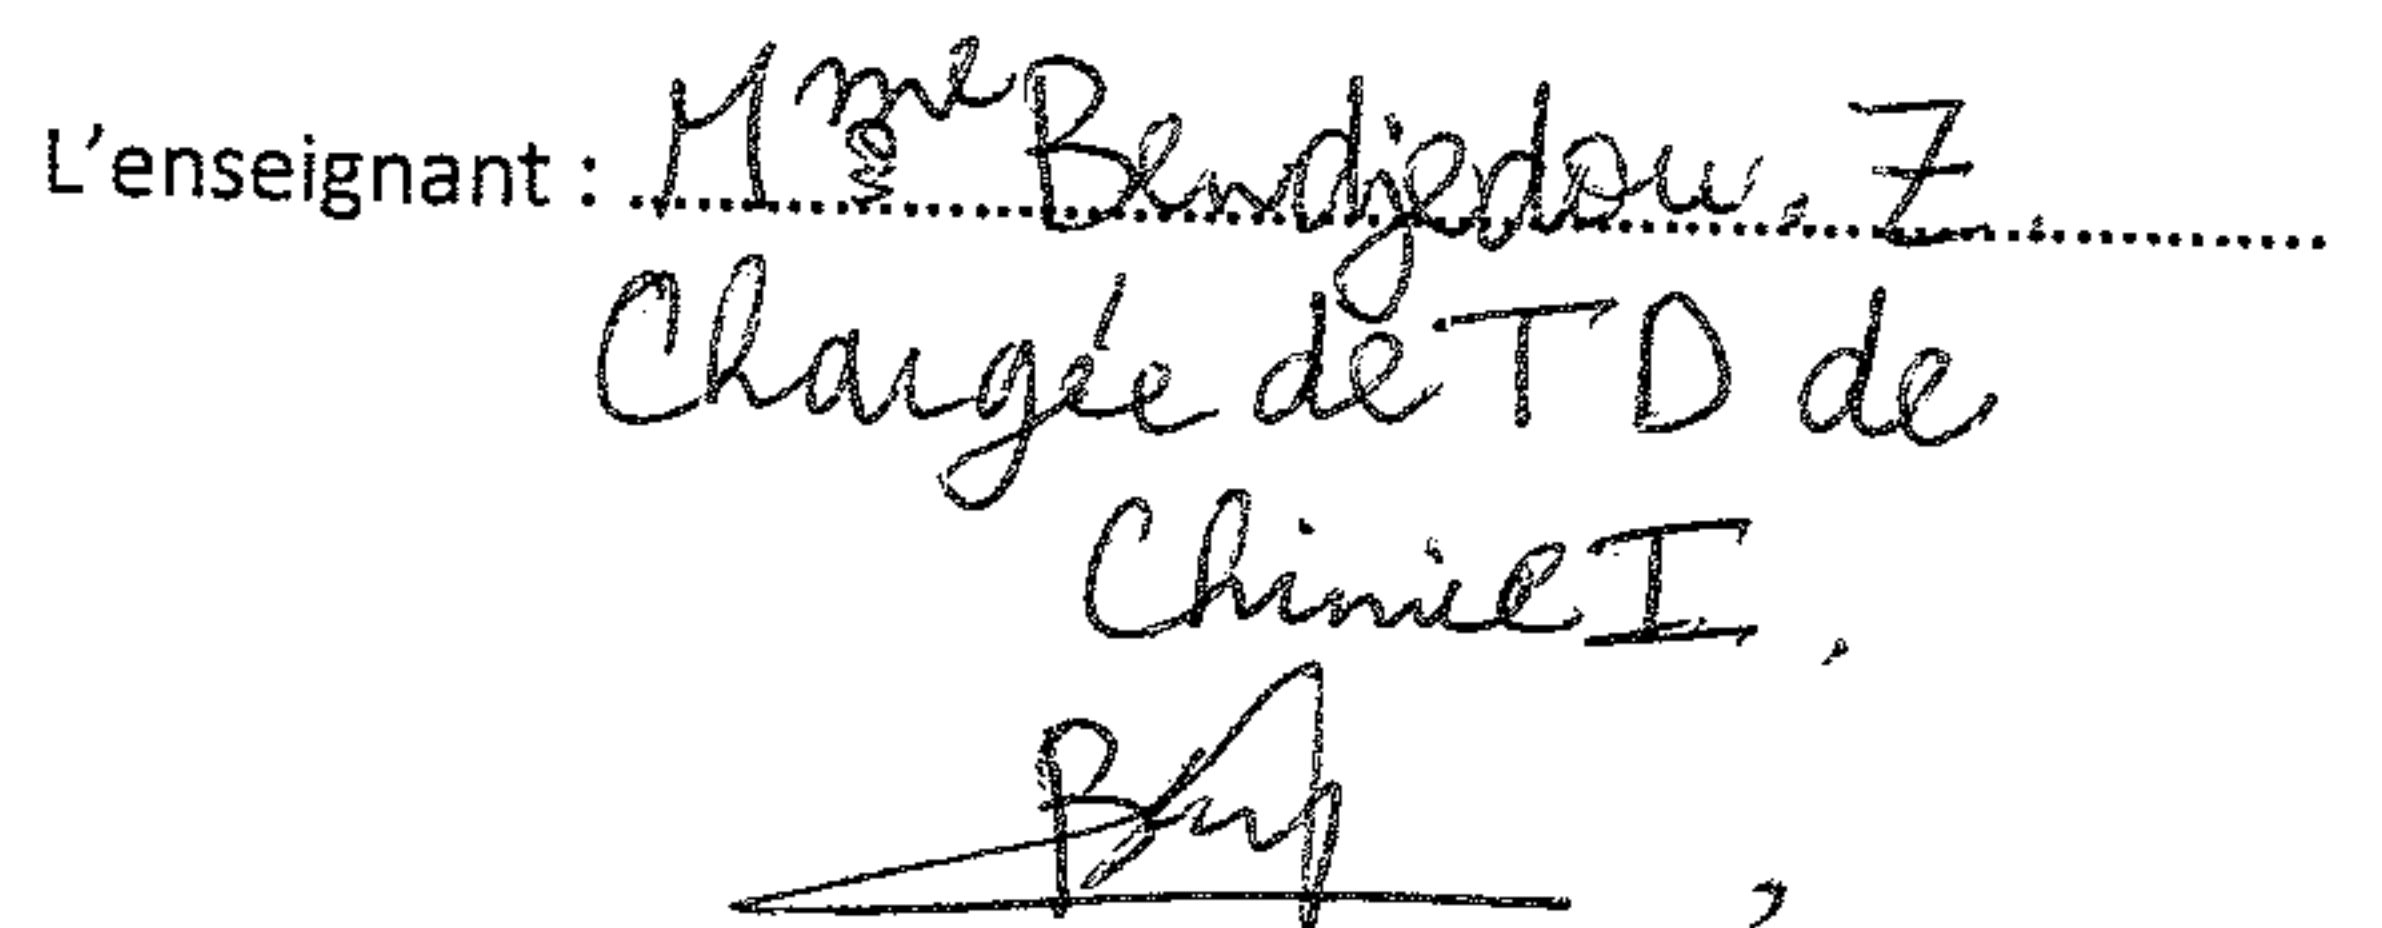 L'enseignant : Mme Bendjedou. Z
Chargée de TD de
Chimie I,